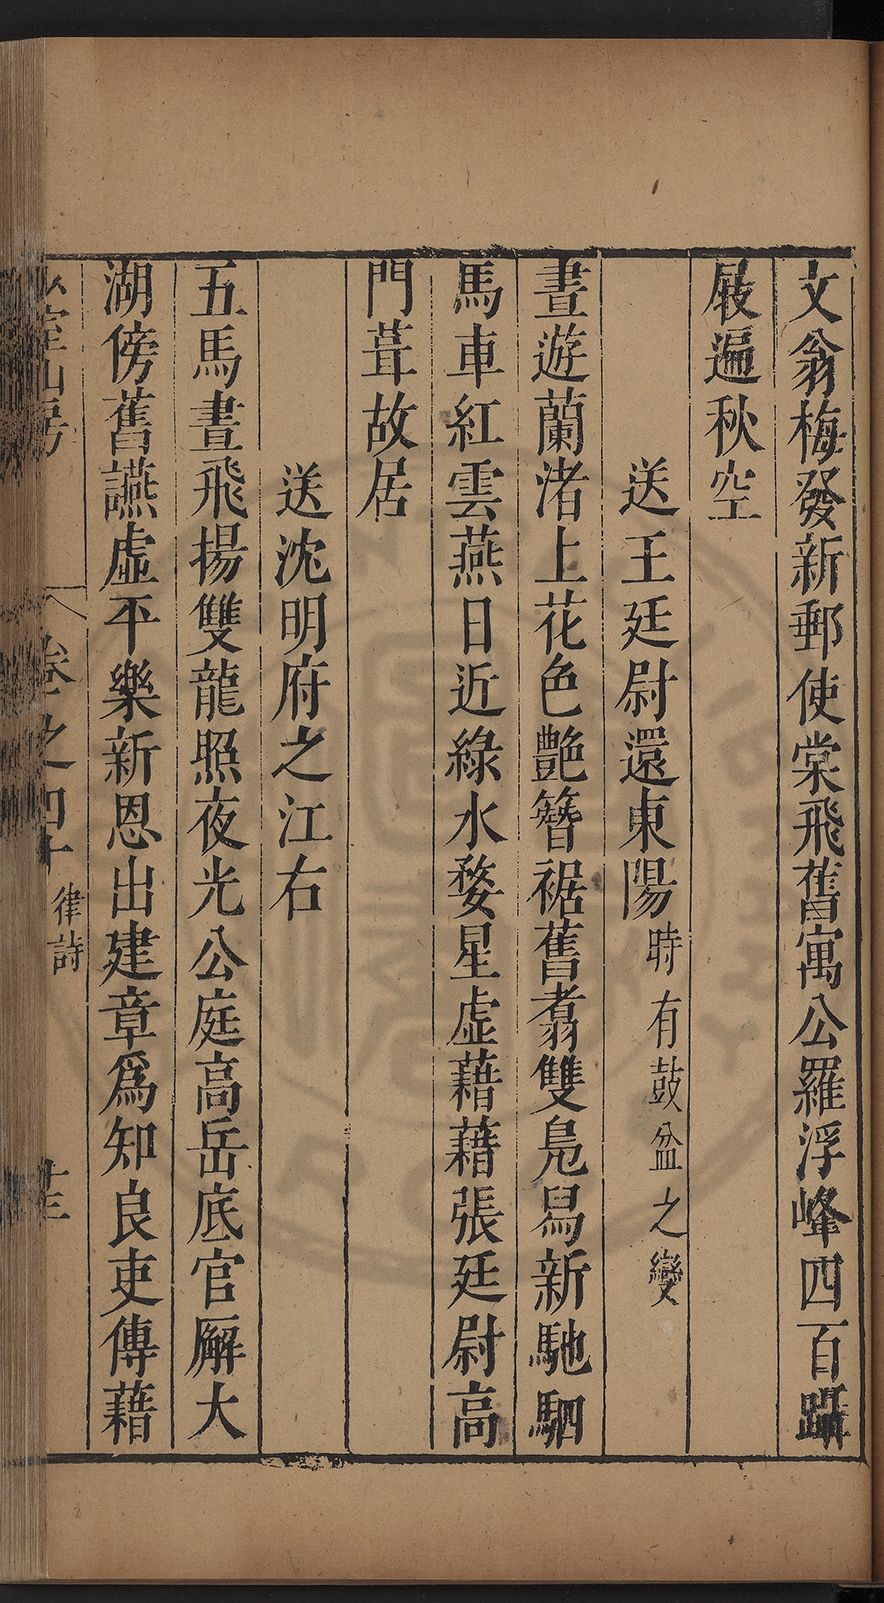 文翁梅發新郵使棠飛舊寓公羅浮峰四百躡
屐遍秋空
送王廷尉還東陽時有鼓盆之變
晝遊蘭渚上花色艷簪裾舊翥雙鳧舄新馳駟
馬車紅雲燕日近綠水婺星虛藉藉張廷尉高
門葺故居
送沈明府之江右
五馬晝飛揚雙龍照夜光公庭高岳底官廨大
湖傍舊讌虛平樂新恩出建章爲知良吏傳藉
室山房 卷之四十 律詩 廿三